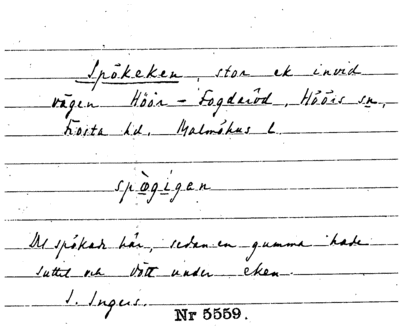 Spökeken, stor ek invid
vägen Höör - Fogdaröd, Höörs sn,
Frosta hd, Malmöhus l.
spögigen
Det spökade här, sedan en gumma hade
suttit och dött under eken.
I. Ingers.
Nr 5559.